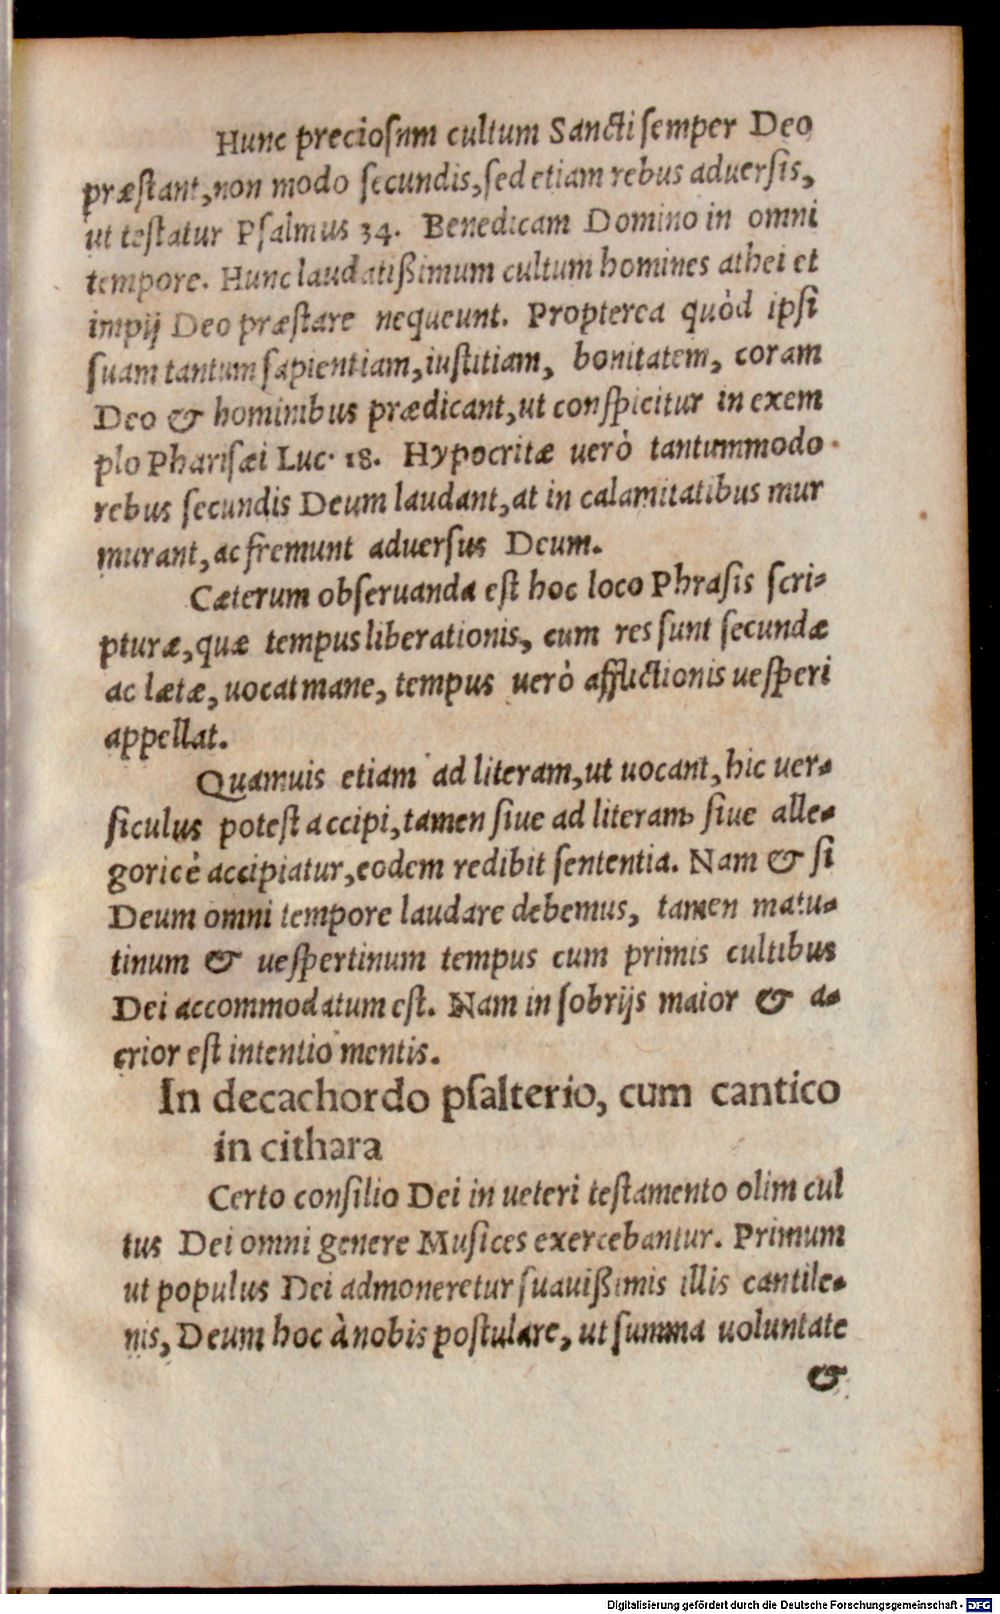 Hunc preciosum cultum Sancti semper Deo
præstant, non modo secundis, sed etiam rebus aduersis,
ut testatur Psalmus 34. Benedicam Domino in omni
tempore. Hunc laudatißimum cultum homines athei et
impij Deo præstare nequeunt. Propterea quòd ipsi
suam tantum sapientiam, iustitiam, bonitatem, coram
Deo & hominibus prædicant, ut conspicitur in exem
plo Pharisæi Luc. 18. Hypocritæ uerò tantummodo
rebus secundis Deum laudant, at in calamitatibus mur
murant, ac fremunt aduersus Deum.
Cæterum obseruanda est hoc loco Phrasis scri-
pturæ, quæ tempus liberationis, cum res sunt secundæ
ac lætæ, uocat mane, tempus uerò afflictionis uesperi
appellat.
Quamuis etiam ad literam, ut uocant, hic uer-
siculus potest accipi, tamen siue ad literam siue alle-
goricè accipiatur, eodem redibit sententia. Nam & si
Deum omni tempore laudare debemus, tamen matu-
tinum & uespertinum tempus cum primis cultibus
Dei accommodatum est. Nam in sobrijs maior & a-
crior est intentio mentis.
In decachordo psalterio, cum cantico
in cithara
Certo consilio Dei in ueteri testamento olim cul
tus Dei omni genere Musices exercebantur. Primum
ut populus Dei admoneretur suauißimis illis cantile-
nis, Deum hoc à nobis postulare, ut summa uoluntate
&
Digitalisierung gefördert durch die Deutsche Forschungsgemeinschaft - DFG